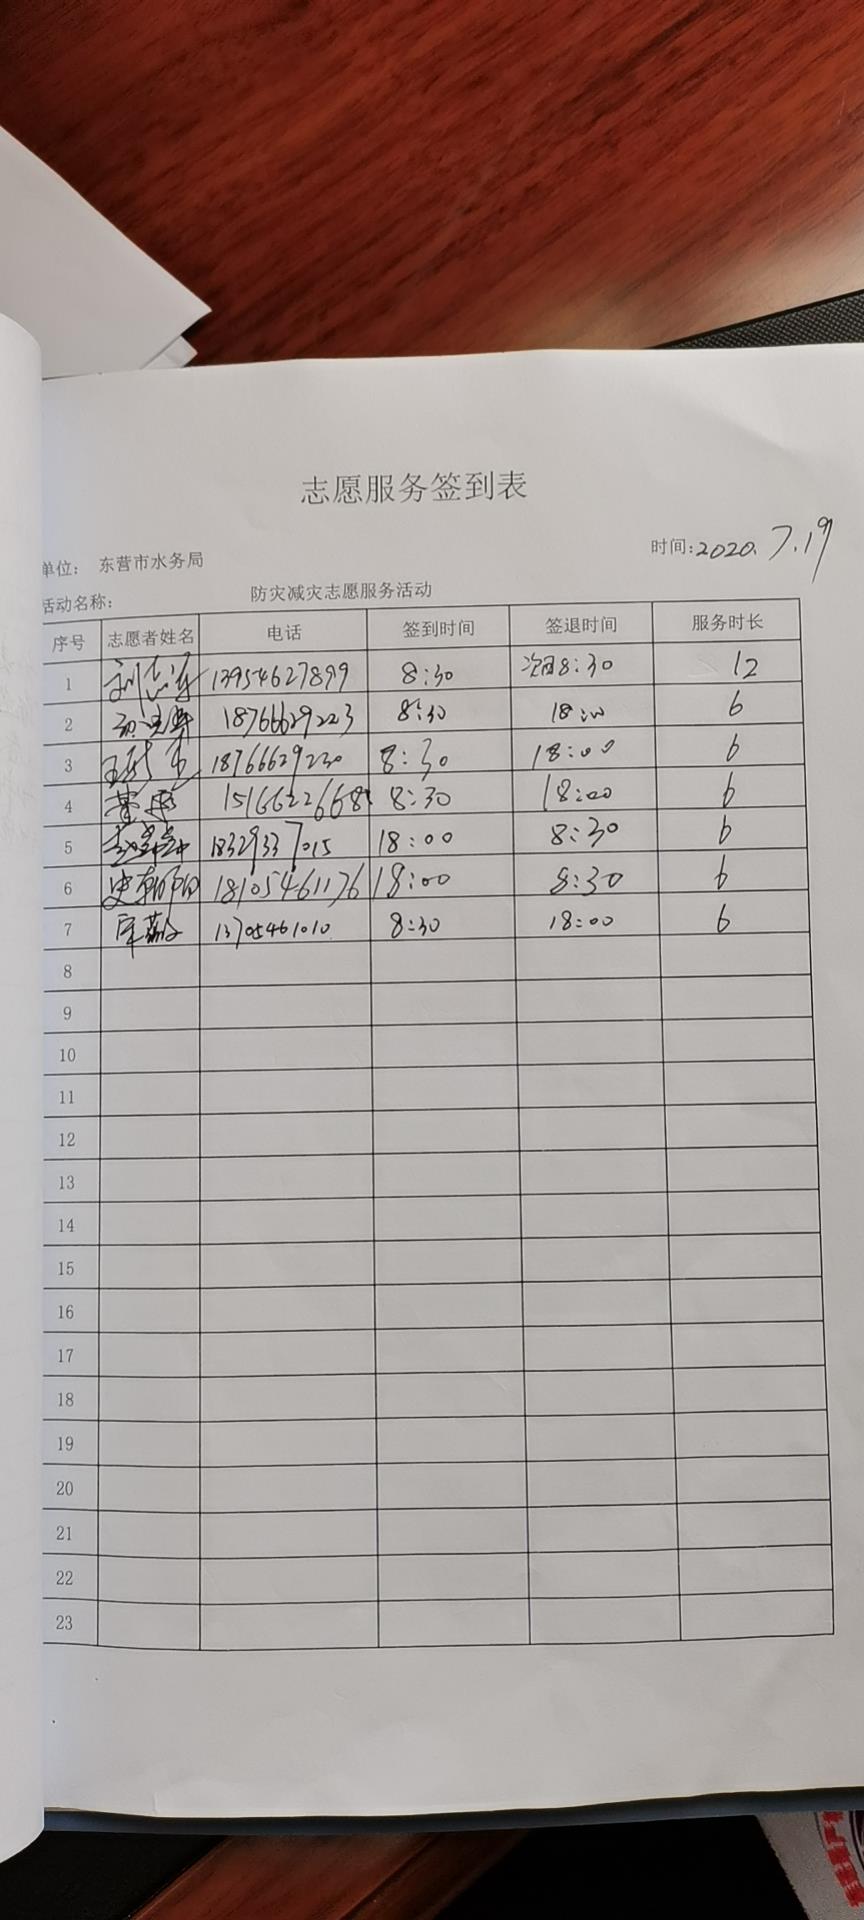 志愿服务签到表
单位： 东营市水务局 时间：2020.7.19
活动名称： 防灾减灾志愿服务活动
序号 志愿者姓名 电话 签到时间 签退时间 服务时长
1 13954627899 8:30 次日8:30 12
2 18766629223 8:30 18:00 6
3 18766629230 8:30 18:00 6
4 董 8:30 18:00 6
5 18329337015 18:00 8:30 6
6 18105461176 18:00 8:30 6
7 13705461010 8:30 18:00 6
8
9
10
11
12
13
14
15
16
17
18
19
20
21
22
23